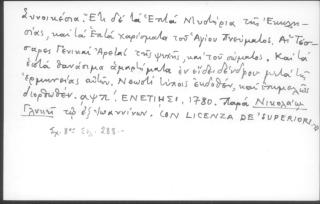 Συνοικέσια: Ἔτι δέ τά Ἑπτά Μυστήρια τῆς Ἐκκλη-
σίας, καί τά Ἑπτά χαρίσματα τοῦ Ἁγίου Πνεύματος. Αἱ Τέσ-
σαρες Γενικαί Ἀρεταί τῆς ψυχῆς, καί τοῦ σώματος. Καί τά
ἑπτά θανάσιμα ἁμαρτήματα ἐν εἴδει δένδρου μετά τῆς
ἑρμηνείας αὐτῶν. Νεωστί τύποις ἐκδοθέν, καί ἐπιμελῶς
διορθωθέν. αψπ΄. ΕΝΕΤΙΗΣΙ. 1780. Παρά Νικολάῳ
Γλυκεῖ τῷ ἐξ Ἰωαννίνων. CON LICENZA DE' SUPERIORI
Σχ. 8ον Σελ. 288.